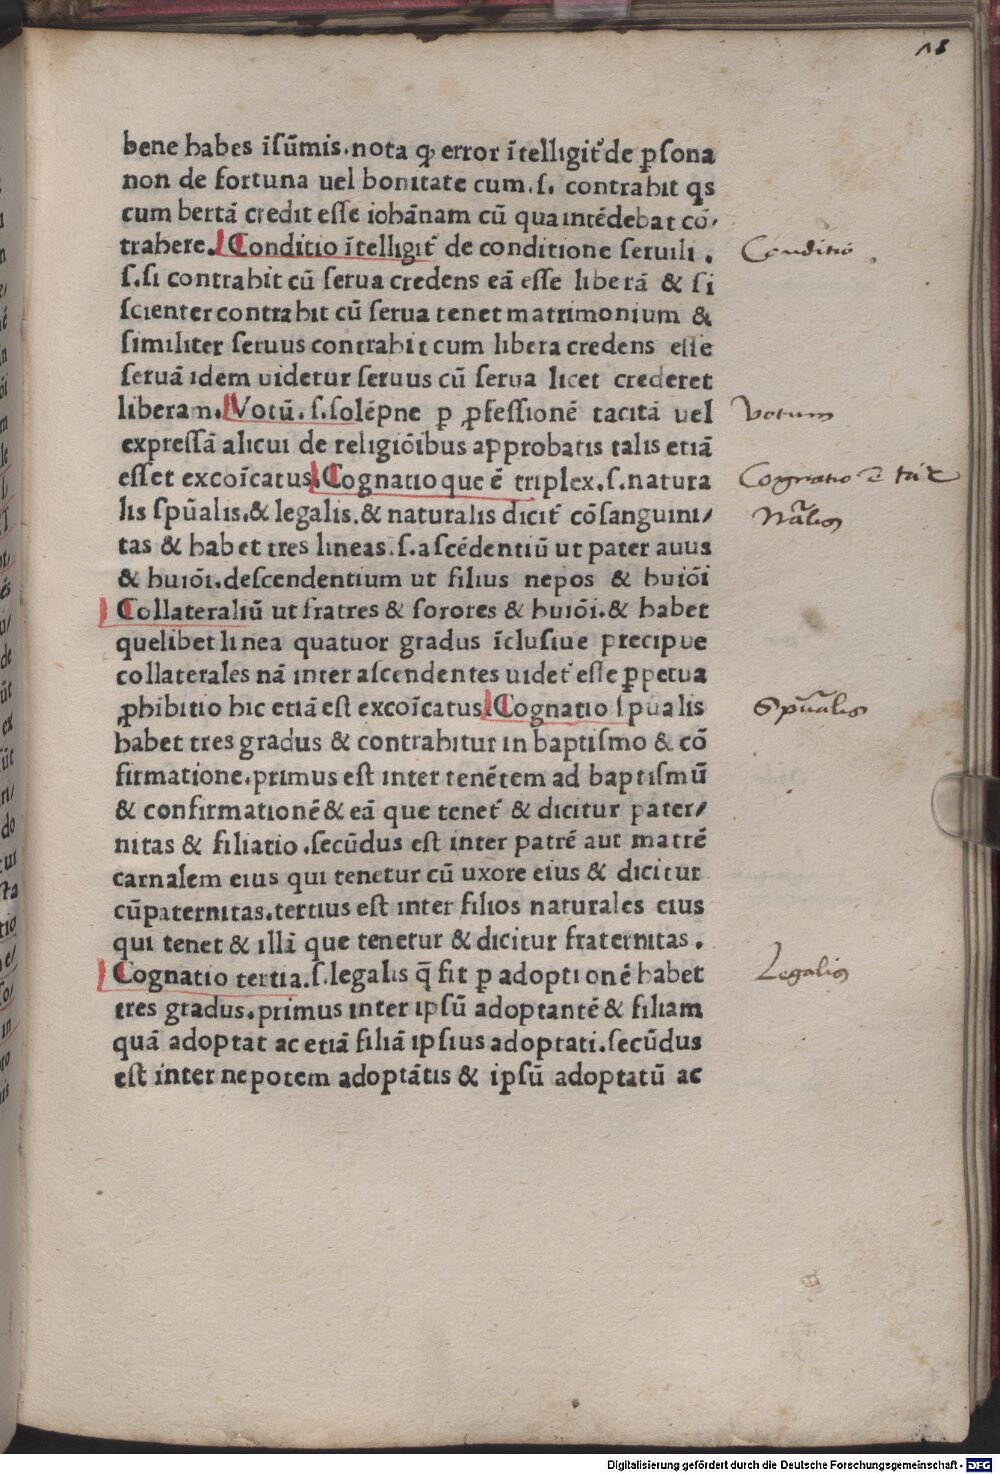 18
bene habes ĩsũmis.nota ꝙ error ĩtelligit᷑ de ꝑsona
non de fortuna uel bonitate cum.ſ. contrahit qs
cum bertã credit eſſe iohãnam cũ qua intẽdebat cõ⸗
trahere. Conditio ĩtelligit᷑ de conditione ſeruili .
Conditio .
ſ.ſi contrahit cũ ſerua credens eã eſſe liberã & ſi
ſcienter contrahit cũ ſerua tenet matrimonium &
ſimiliter ſeruus contrahit cum libera credens eſſe
ſeruã idem uidetur ſeruus cũ ſerua licet crederet
liberam. Votũ. ſ.ſolẽpne ꝑ ꝓfeſſionẽ tacitã uel
Votum
expreſſã alicui de religiõibus approbatis talis etiã
eſſet excoĩcatus. Cognatio que ẽ triplex. ſ.natura
Cognatio
lis ſpũalis.& legalis.& naturalis dicit᷑ cõſanguini⸗
Nãlis
tas & habet tres lineas.ſ.aſcẽdentiũ ut pater auus
& huiõi.deſcendentium ut filius nepos & huiõi
Collateraliũ ut fratres & ſorores & huiõi.& habet
quelibet linea quatuor gradus ĩcluſiue precipue
collaterales nã inter aſcendentes uidet᷑ eſſe ꝑpetua
ꝓhibitio hic etiã eſt excoĩcatus. Cognatio ſpũalis
Spũalis
habet tres gradus & contrahitur in baptiſmo & cõ
firmatione.primus eſt inter tenẽtem ad baptiſmũ
& confirmationẽ & eã que tenet᷑ & dicitur pater⸗
nitas & filiatio .ſecũdus eſt inter patrẽ aut matrẽ
carnalem eius qui tenetur cũ uxore eius & dicitur
cũpaternitas.tertius eſt inter filios naturales eius
qui tenet & illã que tenetur & dicitur fraternitas .
Cognatio tertia.ſ.legalis q̃ fit ꝑ adoptionẽ habet
Legalis
tres gradus.primus inter ipſũ adoptantẽ & filiam
quã adoptat ac etiã filiã ipſius adoptati.ſecũdus
eſt inter nepotem adoptãtis & ipſũ adoptatũ ac
Digitalisierung gefördert durch die Deutsche Forschungsgemeinschaft - DFG